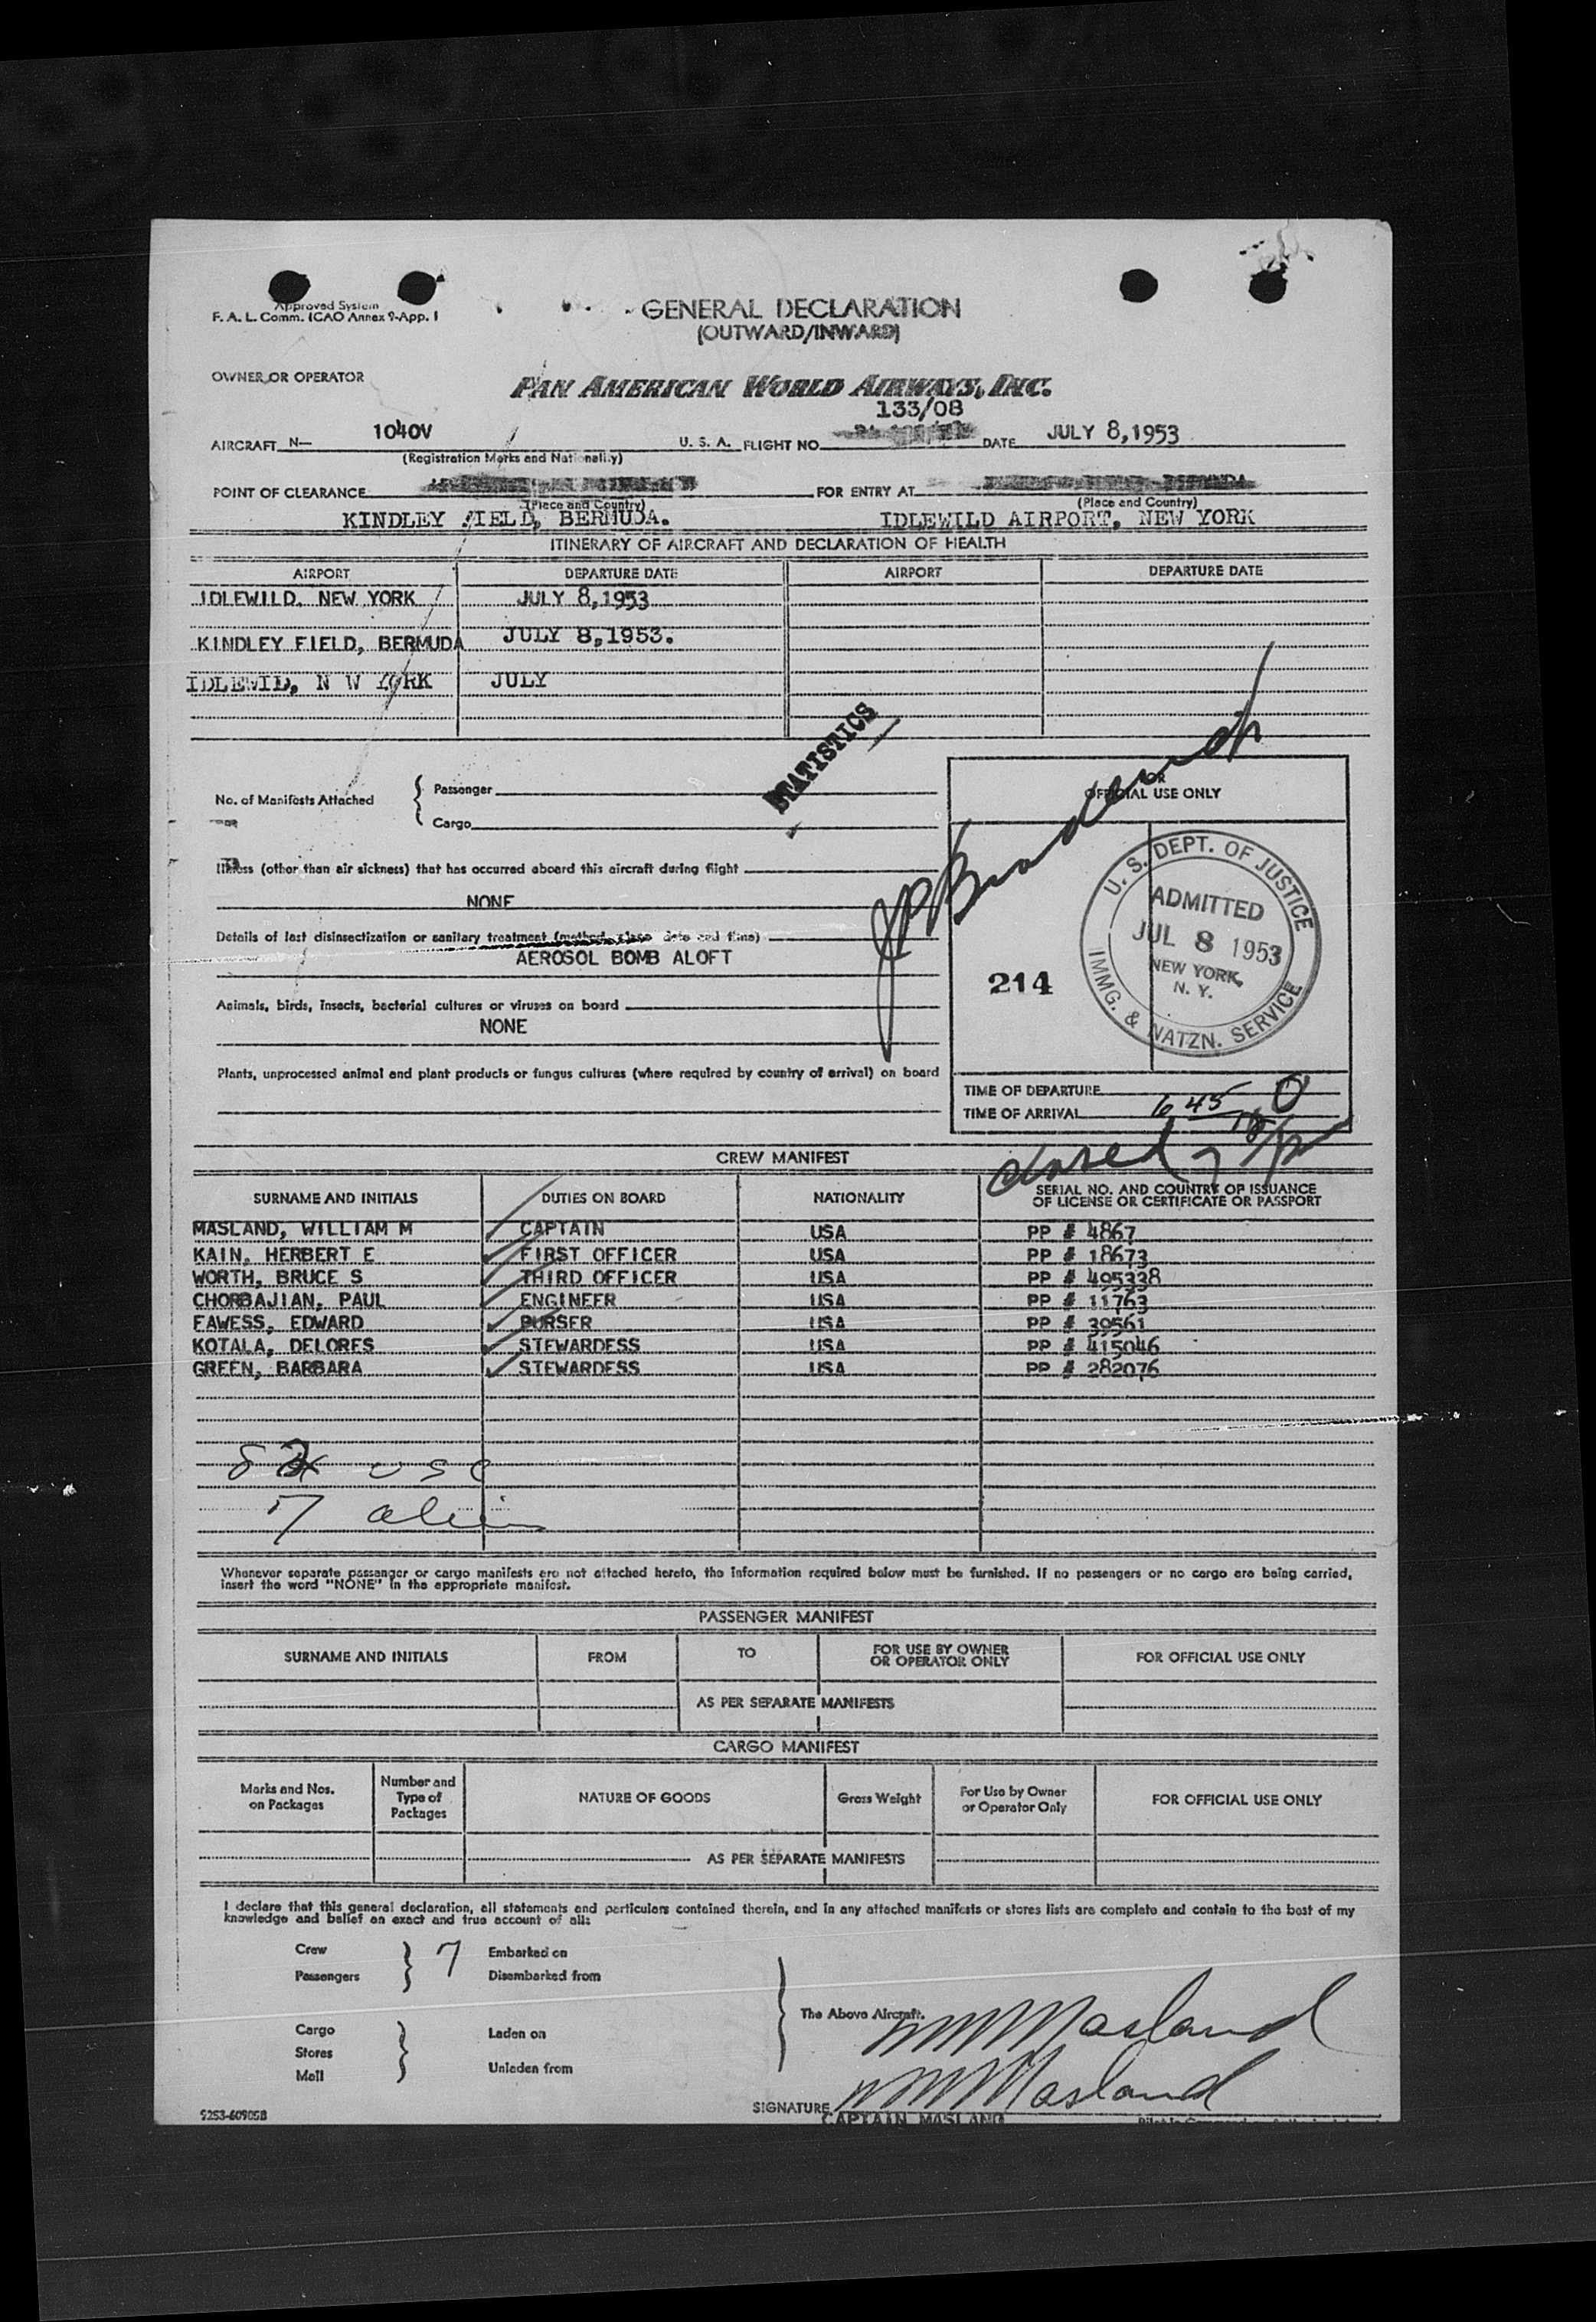 Approved System
F. A. L. Comm. ICAO Annex 9-App. 1
GENERAL DECLARATION
(OUTWARD/INWARD)
OWNER OR OPERATOR
PAN AMERICAN WORLD AIRWAYS, INC.
133/08
AIRCRAFT N— 1040V U. S. A. FLIGHT NO. DATE JULY 8,1953
(Registration Marks and Nationality)
POINT OF CLEARANCE FOR ENTRY AT
(Place and Country) (Place and Country)
KINDLEY FIELD, BERMUDA. IDLEWILD AIRPORT, NEW YORK
ITINERARY OF AIRCRAFT AND DECLARATION OF HEALTH
AIRPORT DEPARTURE DATE AIRPORT DEPARTURE DATE
IDLEWILD, NEW YORK JULY 8,1953
KINDLEY FIELD, BERMUDA JULY 8,1953.
IDLEWID, N W YORK JULY
STATISTICS
No. of Manifests Attached { Passenger
Cargo
FOR
OFFICIAL USE ONLY
Illness (other than air sickness) that has occurred aboard this aircraft during flight
NONE
Details of last disinsectization or sanitary treatment (method, place, date and time)
AEROSOL BOMB ALOFT
Animals, birds, insects, bacterial cultures or viruses on board
NONE
Plants, unprocessed animal and plant products or fungus cultures (where required by country of arrival) on board
214
U. S. DEPT. OF JUSTICE
ADMITTED
JUL 8 1953
NEW YORK,
N. Y.
IMMG. & NATZN. SERVICE
TIME OF DEPARTURE
TIME OF ARRIVAL 6 45
closed 7
CREW MANIFEST
SURNAME AND INITIALS DUTIES ON BOARD NATIONALITY SERIAL NO. AND COUNTRY OF ISSUANCE
OF LICENSE OR CERTIFICATE OR PASSPORT
MASLAND, WILLIAM M CAPTAIN USA PP # 4867
KAIN, HERBERT E FIRST OFFICER USA PP # 18673
WORTH, BRUCE S THIRD OFFICER USA PP # 495338
CHORBAJIAN, PAUL ENGINEER USA PP # 11763
FAWESS, EDWARD PURSER USA PP # 39561
KOTALA, DELORES STEWARDESS USA PP # 415046
GREEN, BARBARA STEWARDESS USA PP # 282076
usc
17 alien
Whenever separate passenger or cargo manifests are not attached hereto, the information required below must be furnished. If no passengers or no cargo are being carried,
insert the word "NONE" in the appropriate manifest.
PASSENGER MANIFEST
SURNAME AND INITIALS FROM TO FOR USE BY OWNER
OR OPERATOR ONLY FOR OFFICIAL USE ONLY
AS PER SEPARATE MANIFESTS
CARGO MANIFEST
Marks and Nos.
on Packages Number and
Type of
Packages NATURE OF GOODS Gross Weight For Use by Owner
or Operator Only FOR OFFICIAL USE ONLY
AS PER SEPARATE MANIFESTS
I declare that this general declaration, all statements and particulars contained therein, and in any attached manifests or stores lists are complete and contain to the best of my
knowledge and belief an exact and true account of all:
Crew 7 Embarked on
Passengers Disembarked from
The Above Aircraft.
WMMasland
Cargo Laden on
Stores
Mail Unladen from
WMMasland
SIGNATURE
CAPTAIN MASLAND
9253-60905B